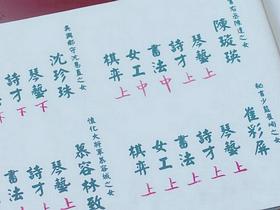 書右丞陳達之女
陳璇瑛
琴藝 上
詩才 上
書法 中
女工 中
棋弈 上
吳興郡守沈易直之女
沈珍珠
琴藝 下
詩才 下
秘書少監崔峋之女
崔彩屏
琴藝 上
詩才 上
書法 上
女工 上
棋弈 上
懷化大將軍慕容城之女
慕容林致
琴藝 上
詩才 上
書法 上
女工